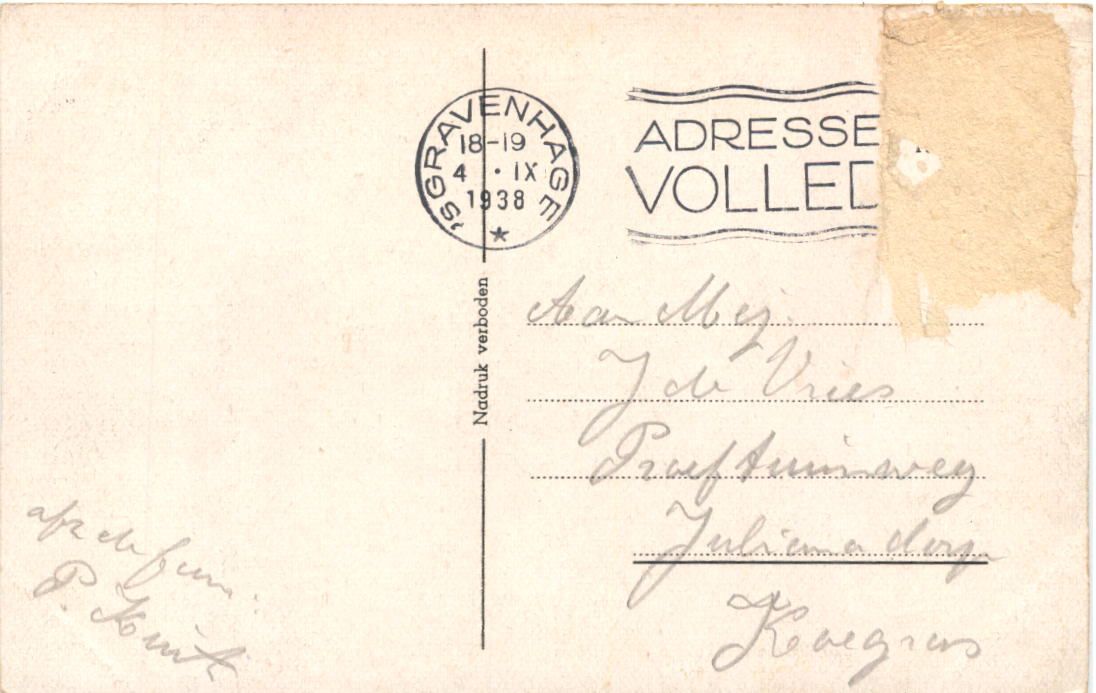 'SGRAVENHAGE
18-19
4 · IX
1938
ADRESSE
VOLLED
Nadruk verboden
Aan Mej.
J de Vries
Proeftuinweg
Julianadorp
Koegras
afz de fam.
P.